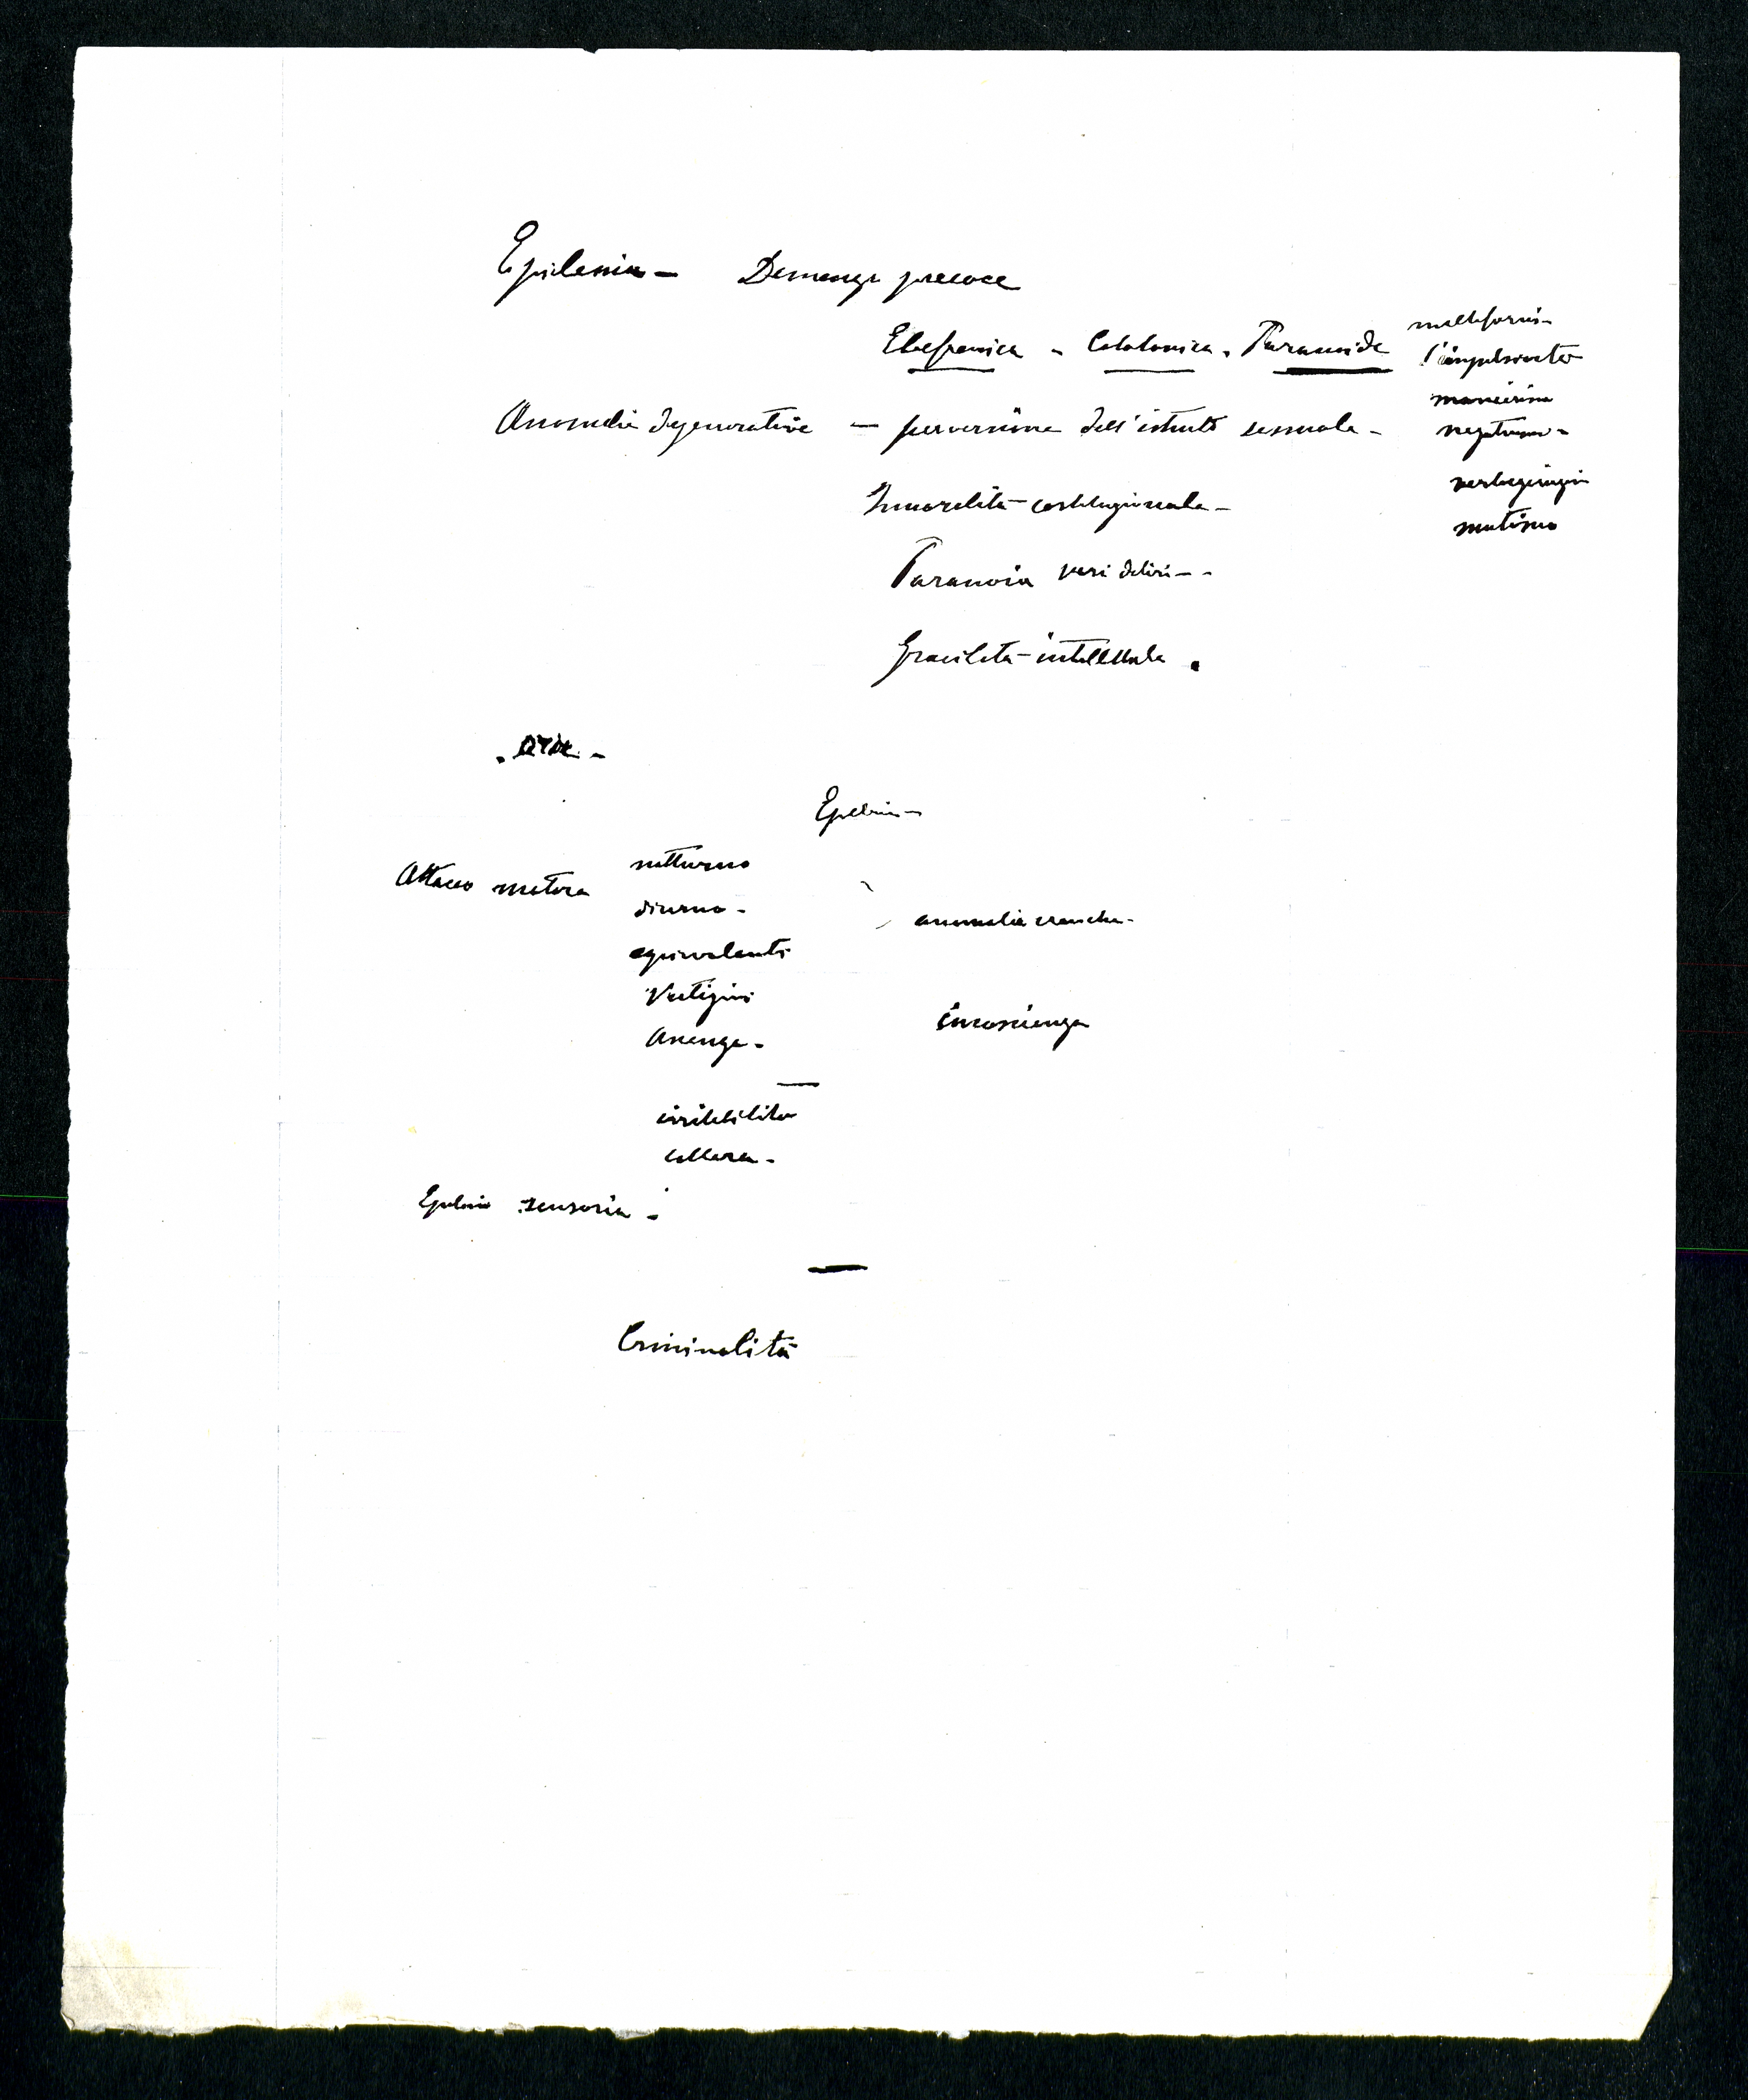 Epilessia - Demenza precoce
Ebefrenica - Catatonica - Paranoide
multiformi -
l'impulsività
manierismo
negativismo -
Anomalie degenerative - perversione dell'istinto sessuale -
verbigerazione
mutismo
Immoralità costituzionale -
Paranoia vari deliri - -
Gracilità intellettuale .
Epilessia -
Attacco motore
notturno
diurno -
anomalie craniche -
equivalenti
Vertigini
incoscienza
Assenze -
irritabilità
collera -
Epilessia sensoria -
Criminalità